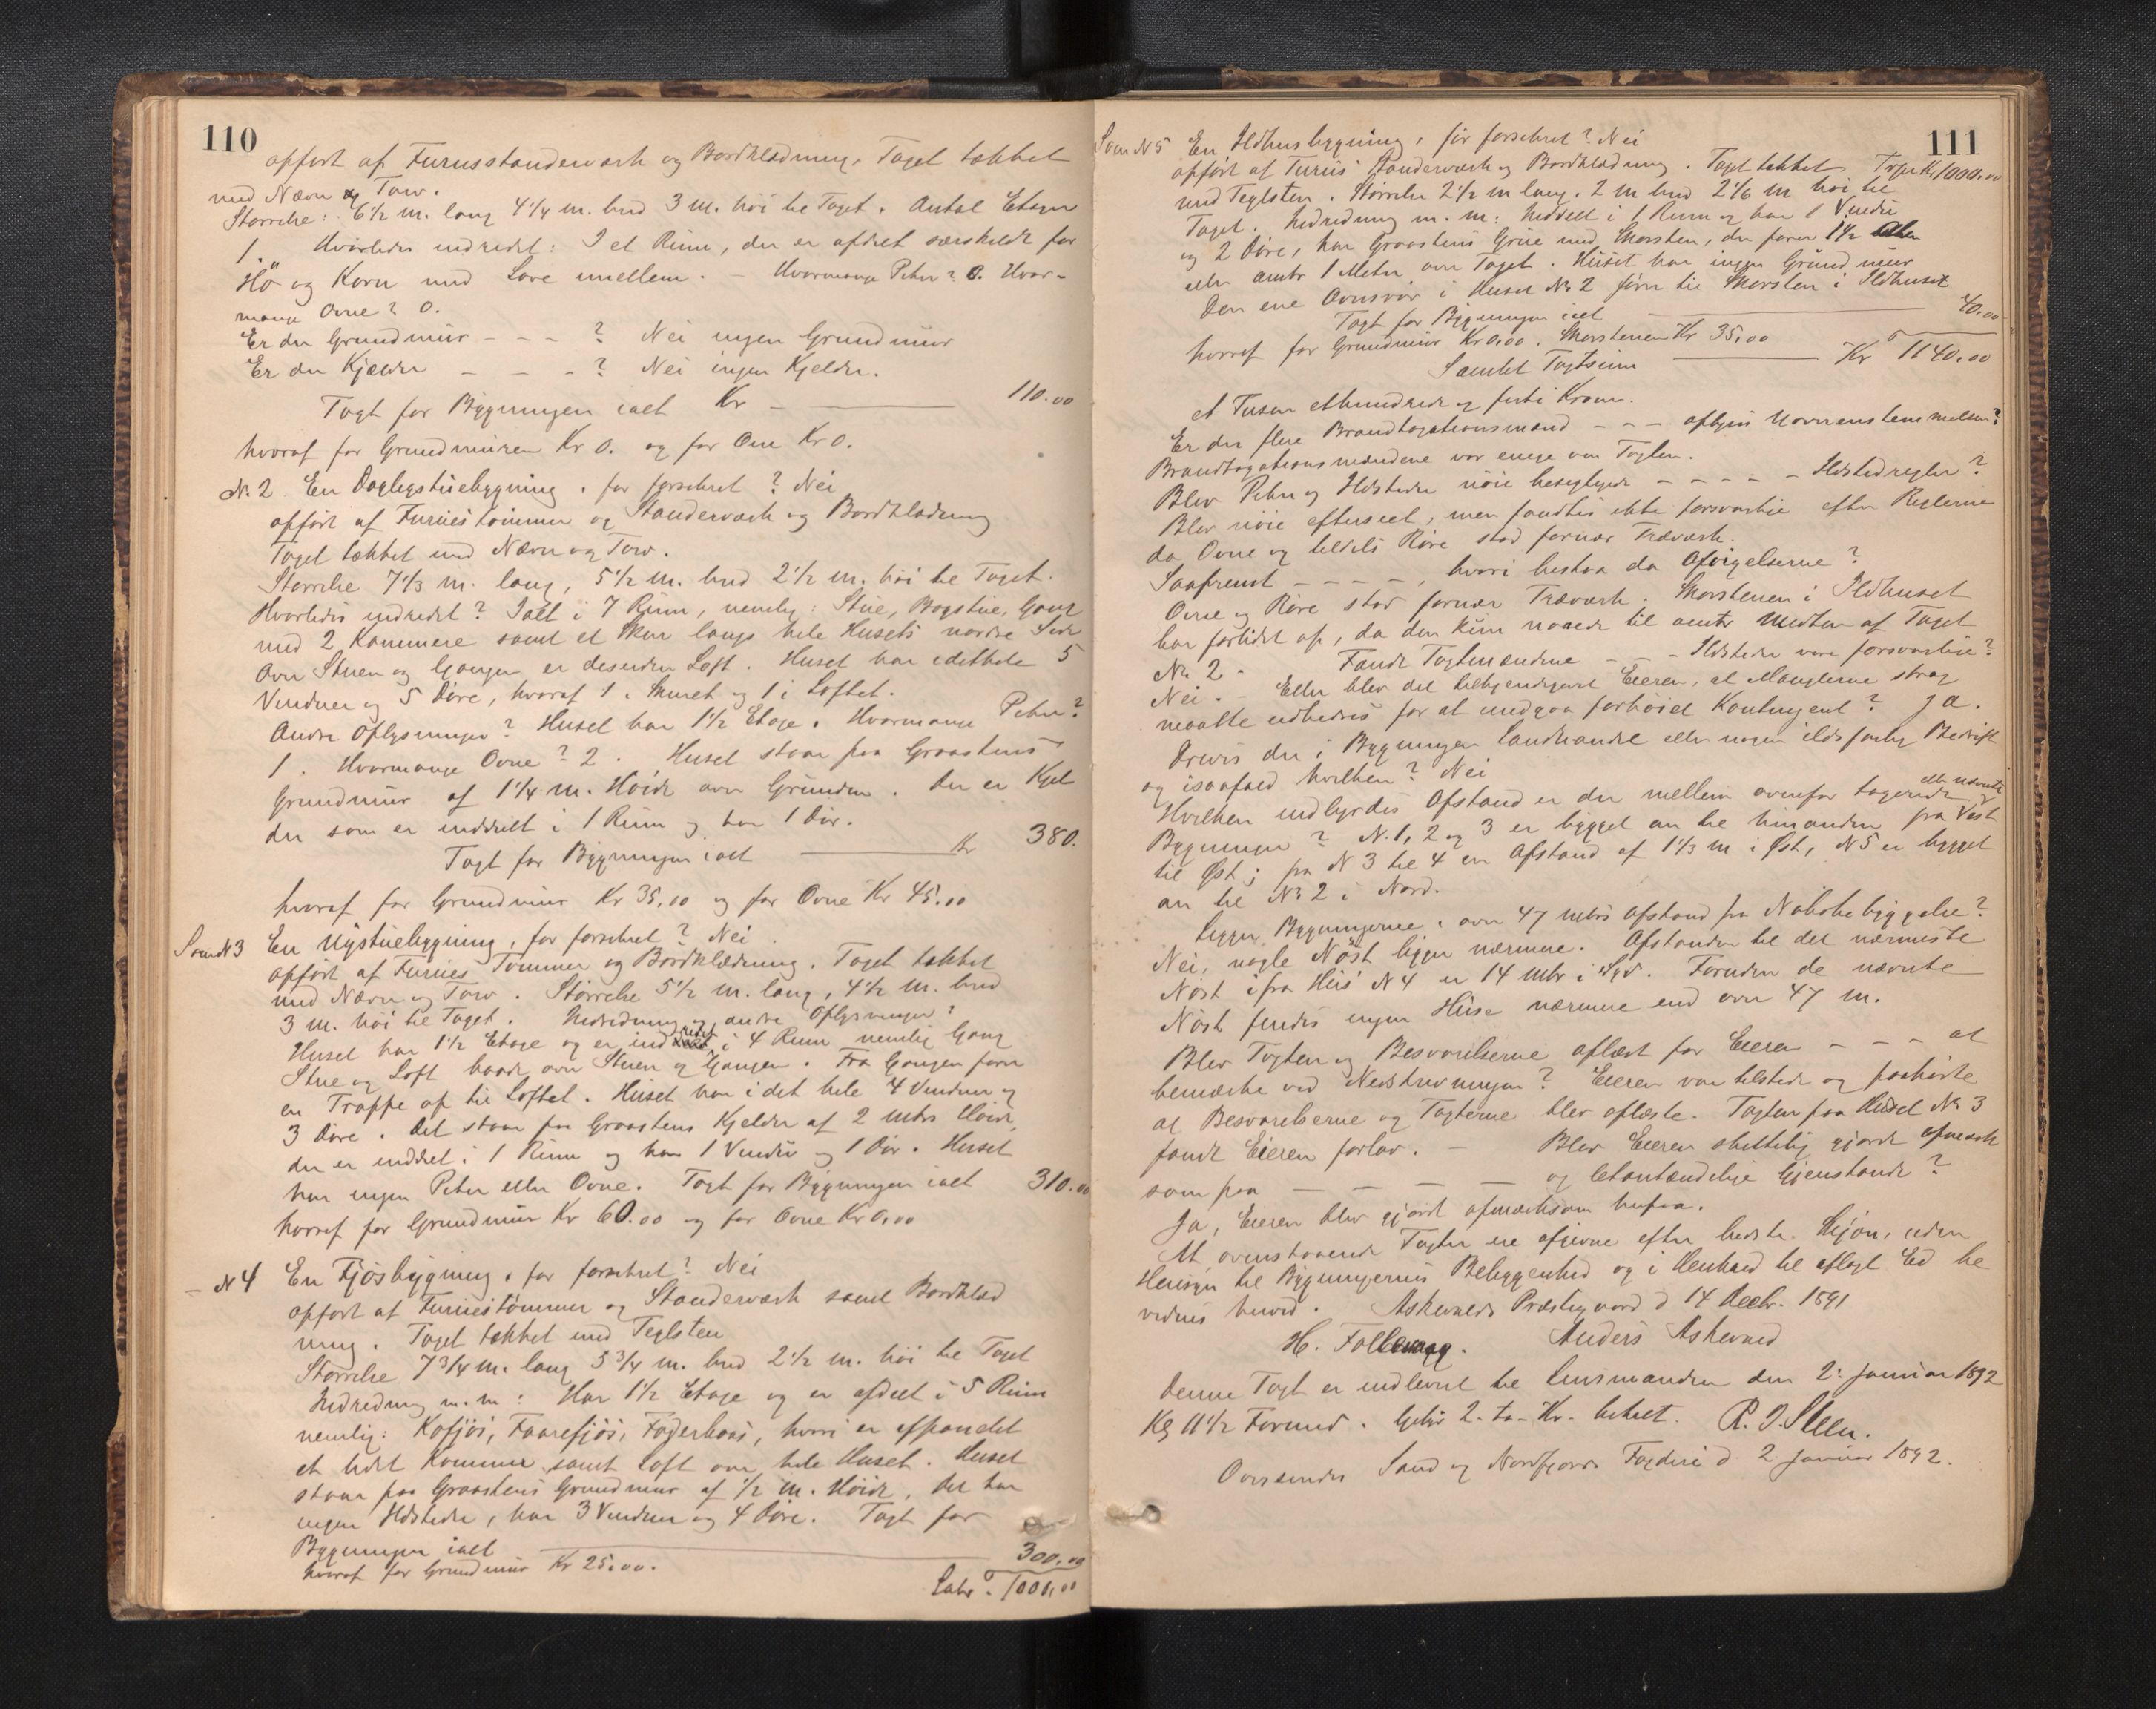 110
opført af Furusstanderværk og Bordklædning, Taget tækket
med Næver og Torv.
Størrelse: 6 1/2 m. lang 4 1/4 m. bred 3 m. høi til Taget. Antal Etager
1. Hvorledes indredet: I et Rum, der er afdelt særskildt for
Hö og Korn med Love imellem. – Hvormange Peber? 0. Hvor-
mange Ovne? 0.
Er der Grundmur - - - ? Nei ingen Grundmur
Er der Kjælder - - - ? Nei ingen Kjelder.
Taxt for Bygningen ialt Kr 110.00
hvoraf for Grundmuren Kr 0. og for Ovne Kr 0.
No. 2 En Dagligstuebygning. før forsikret? Nei
opført af Furuestømmer og Standerværk og Bordklædning
Taget tækket med Næver og Torv.
Størrelse 7 1/3 m. lang, 5 1/2 m. bred 2 1/2 m. høi til Taget.
Hvorledes indredet? Ialt i 7 Rum, nemlig: Stue, Bagstue, Gang
med 2 Kammere samt et Skur langs hele Husets nordre Side
Over Stuen og Gangen er desuden Loft. Huset har idethele 5
Vinduer og 5 Døre, hvoraf 1 i Skuret og 1 i Loftet.
Andre Oplysninger? Huset har 1 1/2 Etage. Hvormange Peber?
1. Hvormange Ovne? 2. Huset staar paa Graastens
Grundmur af 1 1/4 m. Høide over Grunden. Der er Kjel
der som er inddelt i 1 Rum og har 1 Dør.
Taxt for Bygningen ialt Kr 380.
hvoraf for Grundmur Kr 35,00 og for Ovne Kr 45.00
Sam N 3 En Nystuebygning, før forsikret? Nei
opført af Furues Tømmer og Bordklædning. Taget tækket
med Næver og Torv. Størrelse 5 1/2 m. lang, 4 1/2 m. bred
3 m. høi til Taget. Indredning og andre Oplysninger?
Huset har 1 1/2 Etage og er indredet i 4 Rum nemlig Gang
Stue og Loft baade over Stuen og Gangen. Fra Gangen fører
en Trappe op til Loftet. Huset har i det hele 4 Vinduer og
3 Døre. Det staar paa Graastens Kjelder af 2 mtrs Høide,
der er inddelt i 1 Rum og har 1 Vindu og 1 Dør. Huset
har ingen Peber eller Ovne. Taxt for Bygningen ialt 310.00
hvoraf for Grundmur Kr 60.00 og for Ovne Kr 0,00
- N 4 En Fjøsbygning. før forsikret? Nei
opført af Furuestømmer og Standerværk samt Bordklæd
ning. Taget tækket med Teglsten
Størrelse 7 3/4 m. lang 5 3/4 m. bred 2 1/2 m. høi til Taget
Indredning m. m: Har 1 1/2 Etage og er afdelt i 5 Rum
nemlig: Kofjös, Faarefjös, Foderbaas, hvori er afpandet
et lidet Kammer samt Loft over hele Huset. Huset
staar paa Graastens Grundmur af 1/2 m. Høide, det har
ingen Ildsteder, har 3 Vinduer og 4 Døre. Taxt for
Bygningen ialt 300,00
hvoraf for Grundmur Kr 25,00.
Latr. 1000,00
111
Sam N 5 En Ildhusbygning, før forsikret? Nei
opført af Furues Standerværk og Bordklædning. Taget tækket Trspt Kr 1000.00
med Teglsten. Størrelse 2 1/2 m lang. 2 m bred 2 1/6 m høi til
Taget. Indredning m. m: Inddelt i 1 Rum og har 1 Vindu
og 2 Døre, har Graastens Grue med Skorsten, der fører 1 1/2 Alen
eller omtr 1 Meter over Taget. Huset har ingen Grundmur
Den ene Ovnsrør i Huset No 2 fører til Skorsten i Ildhuset
Taxt for Bygningen ialt 40.00
hvoraf for Grundmur Kr 0,00. Skorstenen Kr 35,00
Samlet Taxtsum Kr 1140.00
et Tusen ethundrede og førti Kroner.
Er der flere Brandtaxationsmænd - - - afgives Uoverenstemmelsen?
Brandtaxationsmændene var enige om Taxten.
Blev Peber og Ildsteder nøie besigtigede - - - - - Ildstedregler?
Blev nøie efterseet, men fandtes ikke forsvarlige efter Reglerne
da Ovne og tildels Røre stod fornær Træværk.
Saafremt - - - -, hvori bestaa da Afvigelserne?
Ovne og Røre stod fornær Træværk. Skorstenen i Ildhuset
har forlidet op, da den kun naaede til omtr Midten af Taget
No 2. Fandt Taxtmændene - - - Ildsteder vare forsvarlige?
Nei. Eller blev det tilkjendegivet Eieren, at Manglerne strax
maatte udbedres for at undgaa forhøiet Kontingent? Ja.
Drives der i Bygningen Landhandel eller nogen ildsfarlig Bedrift
og isaafald hvilken? Nei
Hvilken indbyrdes Afstand er der mellem ovenfor taxerede eller nævnte
Bygninger? N. 1, 2 og 3 er bygget an til hinanden fra Vest
til Øst; fra N 3 til 4 en Afstand af 1 1/3 m i Øst, N 5 er bygget
an til No 2 i Nord.
Ligger Bygningerne i over 47 mtrs Afstand fra Nabobebyggelse?
Nei, nogle Nöst ligger nærmere. Afstanden til det nærmeste
Nöst ifra Hus N 4 er 14 Mtr i Syd. Foruden de nævnte
Nöst findes ingen Huse nærmere end over 47 m.
Blev Taxten og Besvarelserne oplæst for Eieren - - - at
bemærke ved Nedskrivningen? Eieren var tilstede og paahørte
at Besvarelserne og Taxterne blev oplæste. Taxten paa Huset No 3
fandt Eieren forlav. – Blev Eieren skriftlig gjort opmærk
som paa - - - - og letantændelige Gjenstande?
Ja, Eieren blev gjort opmærksom herpaa.
At ovenstaaende Taxter ere afgivne efter bedste Skjøn, uden
Hensyn til Bygningernes Beliggenhed og i Henhold til aflagt Ed be
vidnes herved. Askevolds Præstegaard d 14 Decbr. 1891
H. Follevaag. Anders Askevold
Denne Taxt er indleveret til Lensmanden den 2: Januar 1892
Kl 11 1/2 Formd. Gebyr 2 - to - Kr. betalt. R. J. Steen.
Oversendes Sønd og Nordfjords Fogderi d 2 Januar 1892.